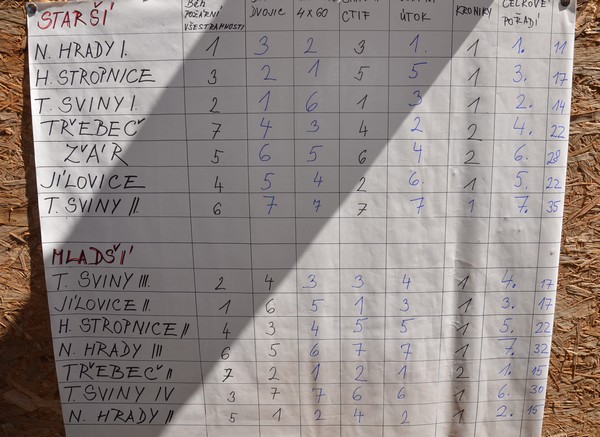 STARŠÍ BĚH POŽÁRNÍ VŠESTRANNOSTI DVOJIC 4x60 CTIF ÚTOK KRONIKY CELKOVÉ POŘADÍ
N. HRADY I. 1 3 2 3 1. 1 1. 11
H. STROPNICE 3 2 1 5 5 1 3. 17
T. SVINY I. 2 1 6 1 3 1 2. 14
TŘEBEČ 7 4 3 4 2 2 4. 22
ŽÁR 5 6 5 6 4 2 6. 28
JÍLOVICE 4 5 4 2 6. 1 5. 22
T. SVINY II. 6 7 7 7 7 1 7. 35
MLADŠÍ
T. SVINY III. 2 4 3 3 4 1 4. 17
JÍLOVICE II. 1 6 5 1 3 1 3. 17
H. STROPNICE II 4 3 4 5 5 1 5. 22
N. HRADY III 6 5 6 7 7 1 7. 32
TŘEBEČ II 7 2 1 2 1 2 1. 15
T. SVINY IV 3 7 7 6 6 1 6. 30
N. HRADY II 5 1 2 4 2 1 2. 15